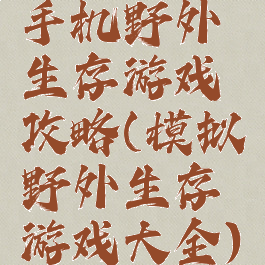 手机野外
生存游戏
攻略(模拟
野外生存
游戏大全)